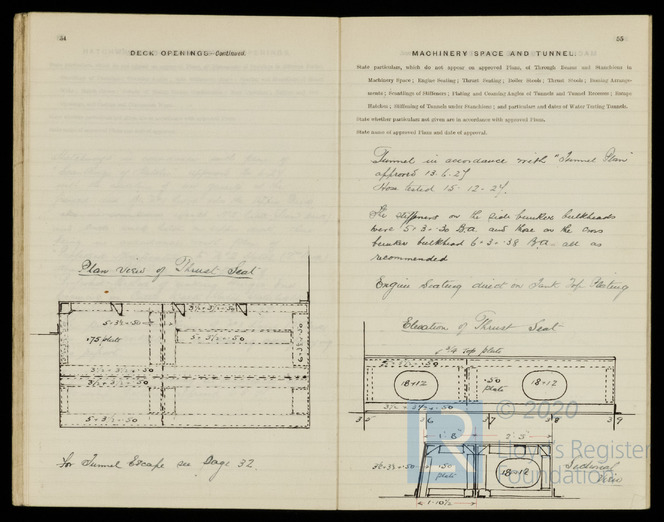 54
DECK OPENINGS—Continued.
Plan view of Thrust Seat
5·3½·.50
3½·3½·.50
.75 plate
5·3½·.50
6·3½·.50
3½·3½·.50
3½·3½·.50
5·3½·.50
for Tunnel Escape see Page 32.
55
MACHINERY SPACE AND TUNNEL.
State particulars, which do not appear on approved Plans, of Through Beams and Stanchions in
Machinery Space; Engine Seating; Thrust Seating; Boiler Stools; Thrust Stools; Boxing Arrange-
ments; Scantlings of Stiffeners; Plating and Crowning Angles of Tunnels and Tunnel Recesses; Escape
Hatches; Stiffening of Tunnels under Stanchions; and particulars and dates of Water Testing Tunnels.
State whether particulars not given are in accordance with approved Plans.
State name of approved Plans and date of approval.
Tunnel in accordance with "Tunnel Plan"
approved 13·6·27
Hose tested 15·12·27.
The stiffeners on the side bunker bulkheads
were 5·3·.30 B.a. and those on the cross
bunker bulkhead 6·3·.38 B.a. all as
recommended
Engine Seating direct on Tank Top Plating
Elevation of Thrust Seat
1¼ top plate
18×12
.50 plate
18×12
3½·3½·.50
36
37
38
39
1·8
2·5
3½·3½·.50
.50 plate
18×12
Sectional View
1·10½
© 2020
Lloyd's Register
Foundation